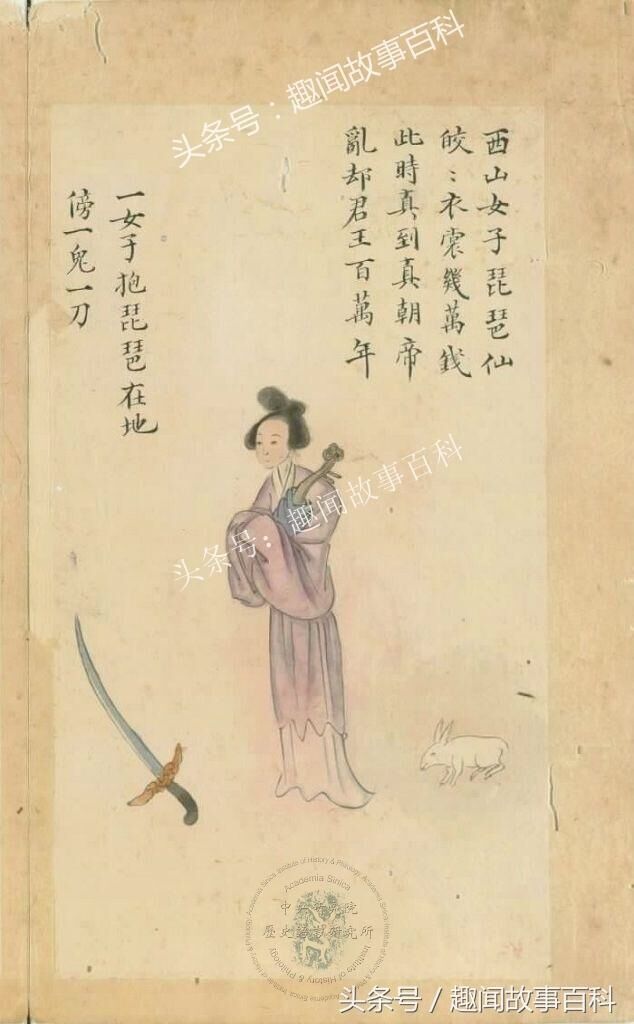 头条号：趣闻故事百科
西山女子琵琶仙
皎〻衣裳幾萬錢
此時真到真朝帝
亂却君王百萬年
一女子抱琵琶在地
傍一兔一刀
头条号：趣闻故事百科
Academia Sinica
中央研究院
歷史語言研究所
Institute of History & Philology
头条号 / 趣闻故事百科